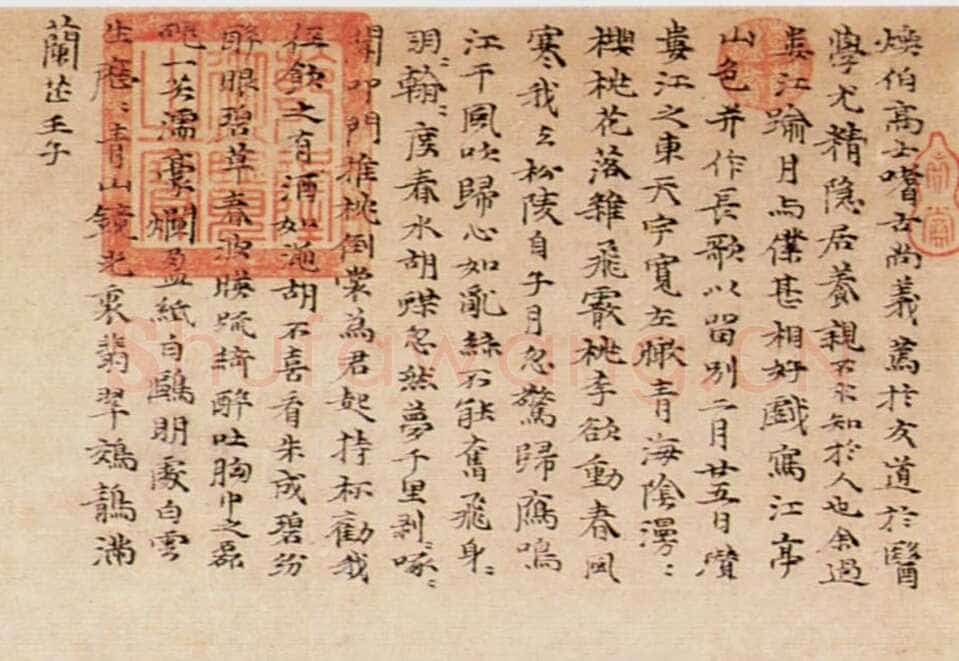 煥伯高士嗜古尚義篤於友道於醫
學尤精隱居養親不求知於人也余過
婁江踰月与僕甚相好戲寫江亭
山色并作長歌以留別二月廿五日瓚
婁江之東天宇寬左瞰青海陰漫〻
櫻桃花落雜飛霰桃李欲動春風
寒我去松陵自子月忽驚歸鴈鳴
江干風吹歸心如亂絲不能奮飛身〻
羽〻翰〻度春水胡蝶忽然夢千里剝〻啄〻
聞叩門推枕倒裳為君起持杯勸我
徑飲之有酒如澠胡不喜看朱成碧紛
醉眼碧草春波暎疏綺醉吐胸中之磊
磈一笑濡毫爛盈紙白鷗明處白雲
生歷〻青山鏡光裏翡翠鵁鶄滿
蘭茝壬子
Shufawang.CN